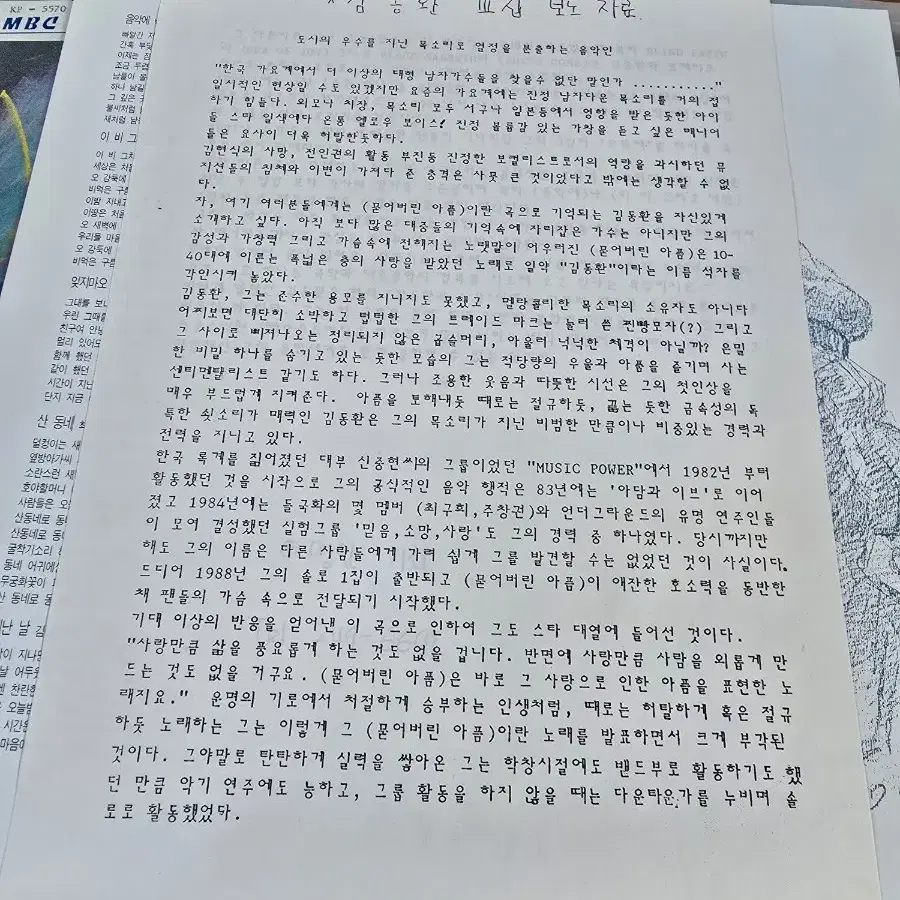 KP - 5570
MBC
김 동 환 보도 자료
도시의 우수를 지닌 목소리로 열정을 분출하는 음악인
"한국 가요계에서 더 이상의 대형 남자가수들을 찾을수 없단 말인가 ..........."
일시적인 현상일 수도 있겠지만 요즘의 가요계에는 진정 남자다운 목소리를 거의 접
하기 힘들다. 외모나 치장, 목소리 모두 서구나 일본등에서 영향을 받은 듯한 아이
들 스타 일색에다 온통 옐로우 보이스! 진정 볼륨감 있는 가창을 듣고 싶은 매니어
들은 요사이 더욱 허탈한듯하다.
김현식의 사망, 전인권의 활동 부진등 진정한 보컬리스트로서의 역량을 과시하던 뮤
지션들의 침체와 이변이 가져다 준 충격은 사뭇 큰 것이었다고 밖에는 생각할 수 없
다.
자, 여기 여러분들에게는 (묻어버린 아픔)이란 곡으로 기억되는 김동환을 자신있게
소개하고 싶다. 아직 보다 많은 대중들의 기억속에 자리잡은 가수는 아니지만 그의
감성과 가창력 그리고 가슴속에 전해지는 노랫말이 어우러진 (묻어버린 아픔)은 10-
40대에 이르는 폭넓은 층의 사랑을 받았던 노래로 일약 "김동환"이라는 이름 석자를
각인시켜 놓았다.
김동환, 그는 준수한 용모를 지니지도 못했고, 멜랑콜리한 목소리의 소유자도 아니다
어찌보면 대단히 소박하고 텁텁한 그의 트레이드 마크는 눌러 쓴 찐빵모자(?) 그리고
그 사이로 삐져나오는 정리되지 않은 곱슬머리, 아울러 넉넉한 체격이 아닐까? 은밀
한 비밀 하나를 숨기고 있는 듯한 모습의 그는 적당량의 우울과 아픔을 즐기며 사는
센티멘탈리스트 같기도 하다. 그러나 조용한 웃음과 따뜻한 시선은 그의 첫인상을
매우 부드럽게 지켜준다. 아픔을 토해내듯 때로는 절규하듯, 끓는 듯한 금속성의 독
특한 쇳소리가 매력인 김동환은 그의 목소리가 지닌 비범한 만큼이나 비중있는 경력과
전력을 지니고 있다.
한국 록계를 짊어졌던 대부 신중현씨의 그룹이었던 "MUSIC POWER"에서 1982년 부터
활동했던 것을 시작으로 그의 공식적인 음악 행적은 83년에는 '아담과 이브'로 이어
졌고 1984년에는 들국화의 몇 멤버 (최구희,주찬권)와 언더그라운드의 유명 연주인들
이 모여 결성했던 실험그룹 '믿음,소망,사랑'도 그의 경력 중 하나였다. 당시까지만
해도 그의 이름은 다른 사람들에게 가려 쉽게 그를 발견할 수는 없었던 것이 사실이다.
드디어 1988년 그의 솔로 1집이 출반되고 (묻어버린 아픔)이 애잔한 호소력을 동반한
채 팬들의 가슴 속으로 전달되기 시작했다.
기대 이상의 반응을 얻어낸 이 곡으로 인하여 그도 스타 대열에 들어선 것이다.
"사랑만큼 삶을 풍요롭게 하는 것도 없을 겁니다. 반면에 사랑만큼 사람을 외롭게 만
드는 것도 없을 거구요. (묻어버린 아픔)은 바로 그 사랑으로 인한 아픔을 표현한 노
래지요." 운명의 기로에서 처절하게 승부하는 인생처럼, 때로는 허탈하게 혹은 절규
하듯 노래하는 그는 이렇게 그 (묻어버린 아픔)이란 노래를 발표하면서 크게 부각된
것이다. 그야말로 탄탄하게 실력을 쌓아온 그는 학창시절에도 밴드부로 활동하기도 했
던 만큼 악기 연주에도 능하고, 그룹 활동을 하지 않을 때는 다운타운가를 누비며 솔
로로 활동했었다.